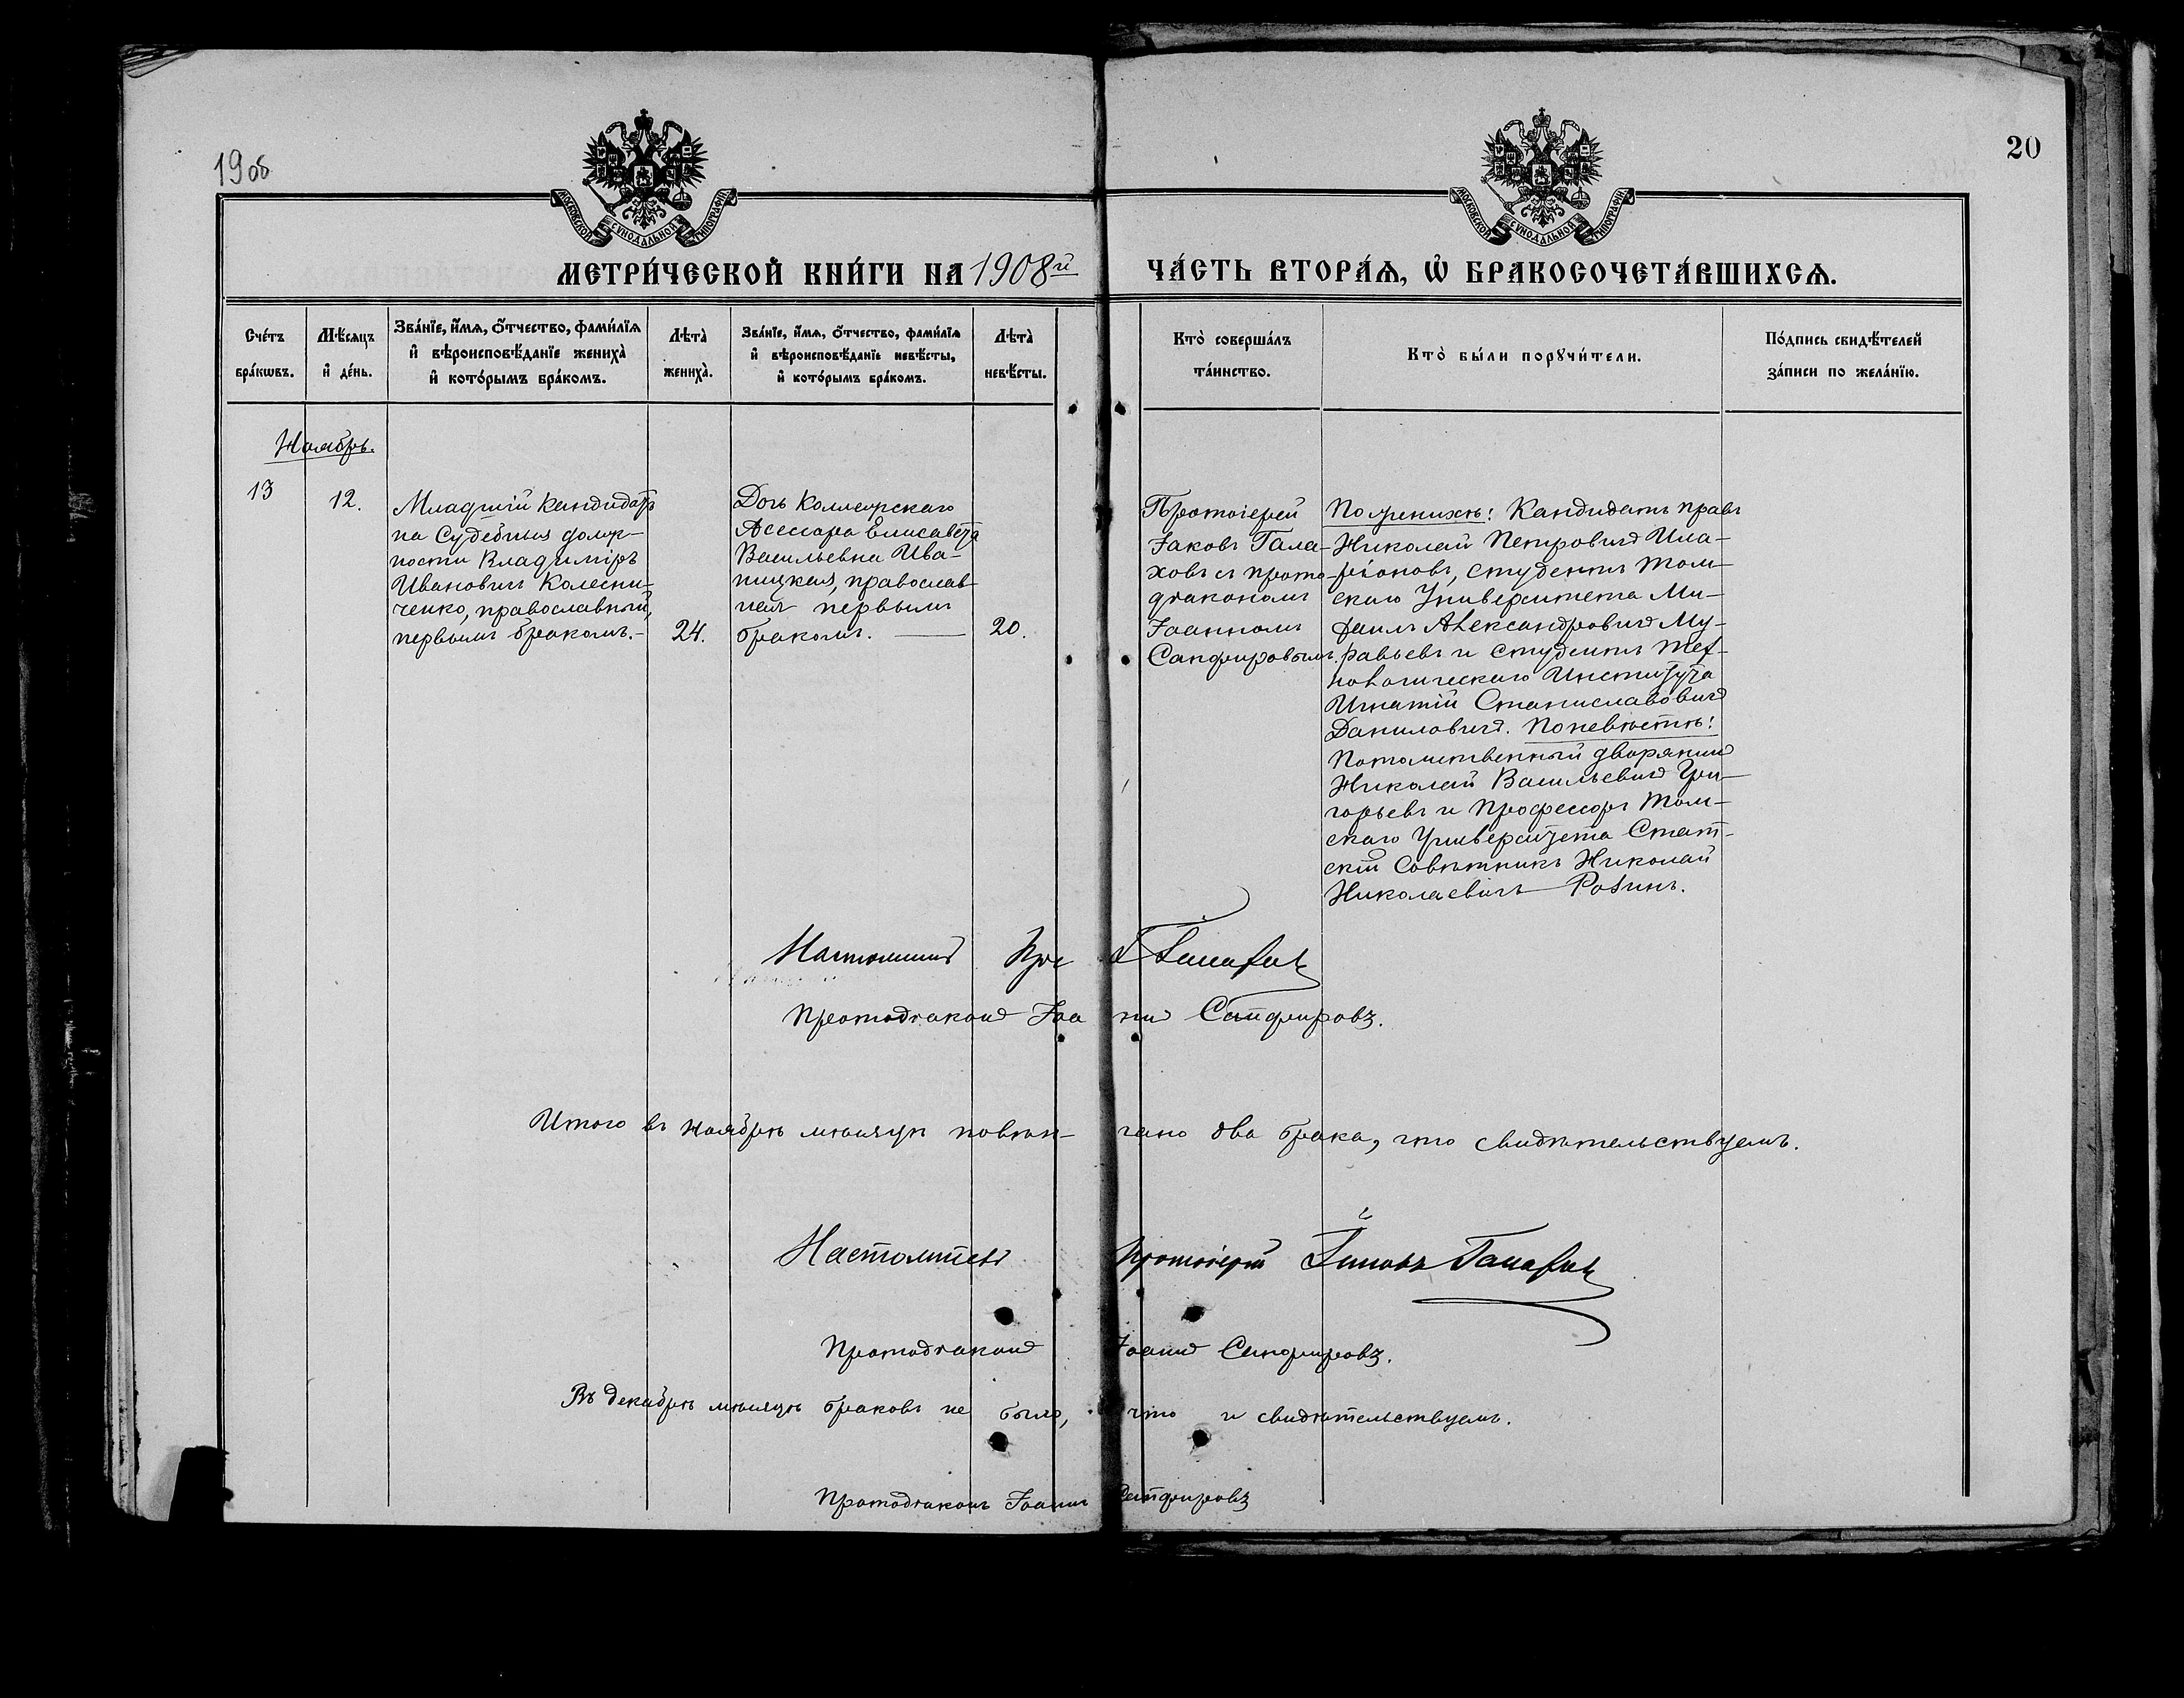 1908
20
МОСКОВСКОЙ СѴНОДАЛЬНОЙ ТИПОГРАФІИ
МОСКОВСКОЙ СѴНОДАЛЬНОЙ ТИПОГРАФІИ
МЕТРИ́ЧЕСКОЙ КНИ́ГИ НА 1908й
ЧА́СТЬ ВТОРА́Ѧ, Ѽ БРАКОСОЧЕТА́ВШИХСѦ.
Сче́тъ
бра́кѡвъ.
Мѣ́сѧцъ
и҆ де́нь.
Зва́нїе, и҆́мѧ, ѻ҆́тчество, фами́лїѧ
и҆ вѣроисповѣ́данїе жениха̀
и҆ кото́рымъ бра́комъ.
Лѣта̀
жениха̀.
Зва́нїе, и҆́мѧ, ѻ҆́тчество, фами́лїѧ
и҆ вѣроисповѣ́данїе невѣ́сты,
и҆ кото́рымъ бра́комъ.
Лѣта̀
невѣ́сты.
Кто̀ соверша́лъ
та́инство.
Кто̀ бы́ли порꙋчи́тели.
По́дпись свидѣ́телей
за́писи по жела́нїю.
Ноябрь.
13
12.
Младшій кандидатъ
на Судебныя долж-
ности Владиміръ
Ивановичъ Колесни-
ченко, православный,
первымъ бракомъ.-
24.
Дочь Коллежскаго
Асессора Елисавета
Васильевна Ива-
ницкая, православ-
ная первымъ
бракомъ.
20.
Протоіерей
Іаковъ Гала-
ховъ съ прото-
діакономъ
Іоанномъ
Сапфировымъ.
По женихѣ: Кандидатъ правъ
Николай Петровичъ Ила-
ріоновъ, студентъ Том-
скаго Университета Ми-
хаилъ Александровичъ Му-
равьевъ и студентъ Тех-
нологическаго Института
Игнатій Станиславовичъ
Даниловичъ. По невѣстѣ:
Потомственный дворянинъ
Николай Васильевичъ Гри-
горьевъ и Профессоръ Том-
скаго Университета Стат-
скій Совѣтникъ Николай
Николаевичъ Розинъ.
Настоятель Прот Галаховъ
Протодіаконъ Іоаннъ Сапфировъ.
Итого въ ноябрѣ мѣсяцѣ повѣн- чано два брака, что свидѣтельствуемъ.
Настоятель Протоіерей Іаковъ Галаховъ
Протодіаконъ Іоаннъ Сапфировъ.
Въ декабрѣ мѣсяцѣ браковъ не было, что и свидѣтельствуемъ.
Протодіаконъ Іоаннъ Сапфировъ